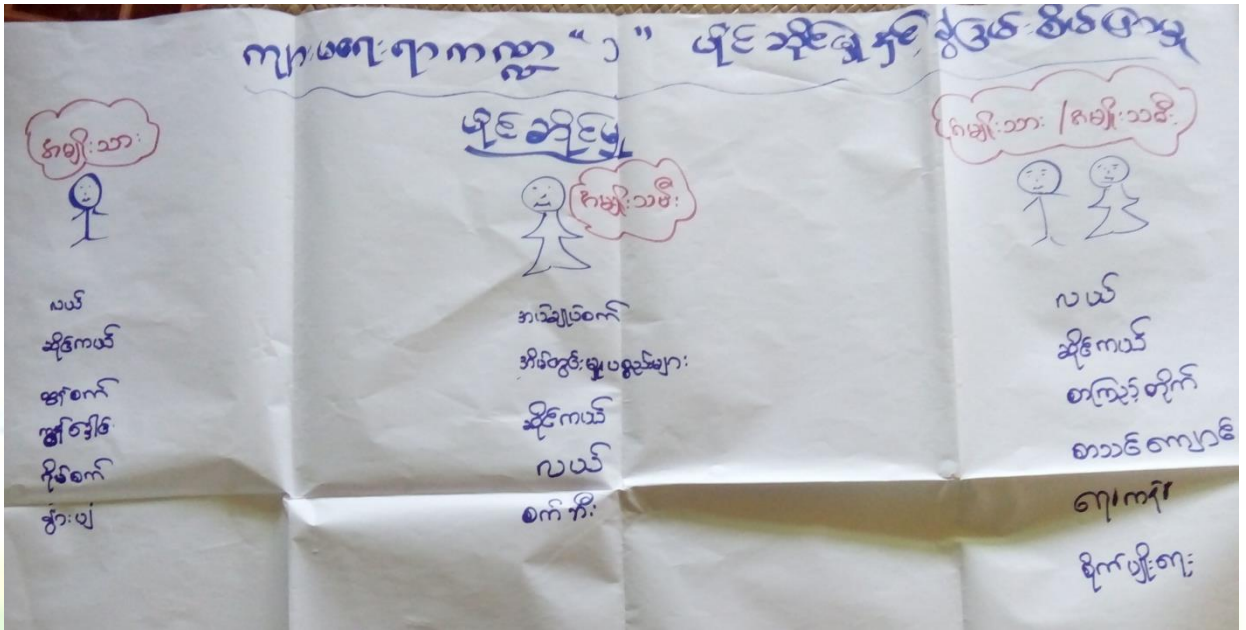 ကျားမရေးရာကဏ္ဍ "၁" ပိုင်ဆိုင်မှုနှင့် ခွဲခြမ်းစိတ်ဖြာမှု
ပိုင်ဆိုင်မှု
အမျိုးသား
လယ်
ဆိုင်ကယ်
ထွန်စက်
ထွန်
စက်
အမျိုးသမီး
အပ်ချုပ်စက်
အိမ်တွင်းမှုပစ္စည်းများ
ဆိုင်ကယ်
လယ်
စက်ဘီး
အမျိုးသား / အမျိုးသမီး
လယ်
ဆိုင်ကယ်
စာကြည့်တိုက်
စာသင်ကျောင်း
ရေကန်
စိုက်ပျိုးရေး